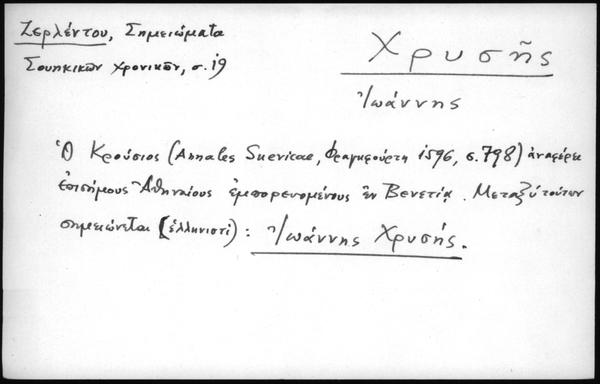 Ζερλέντου, Σημειώματα
Σουηκικῶν χρονικῶν, σ. 19
Χρυσῆς
Ἰωάννης
Ὁ Κρούσιος (Annales Suevicae, Φραγκφούρτη 1596, σ. 798) ἀναφέρει
ἐπισήμους Ἀθηναίους ἐμπορευομένους ἐν Βενετίᾳ. Μεταξὺ τούτων
σημειώνεται (ἑλληνιστί): Ἰωάννης Χρυσῆς.